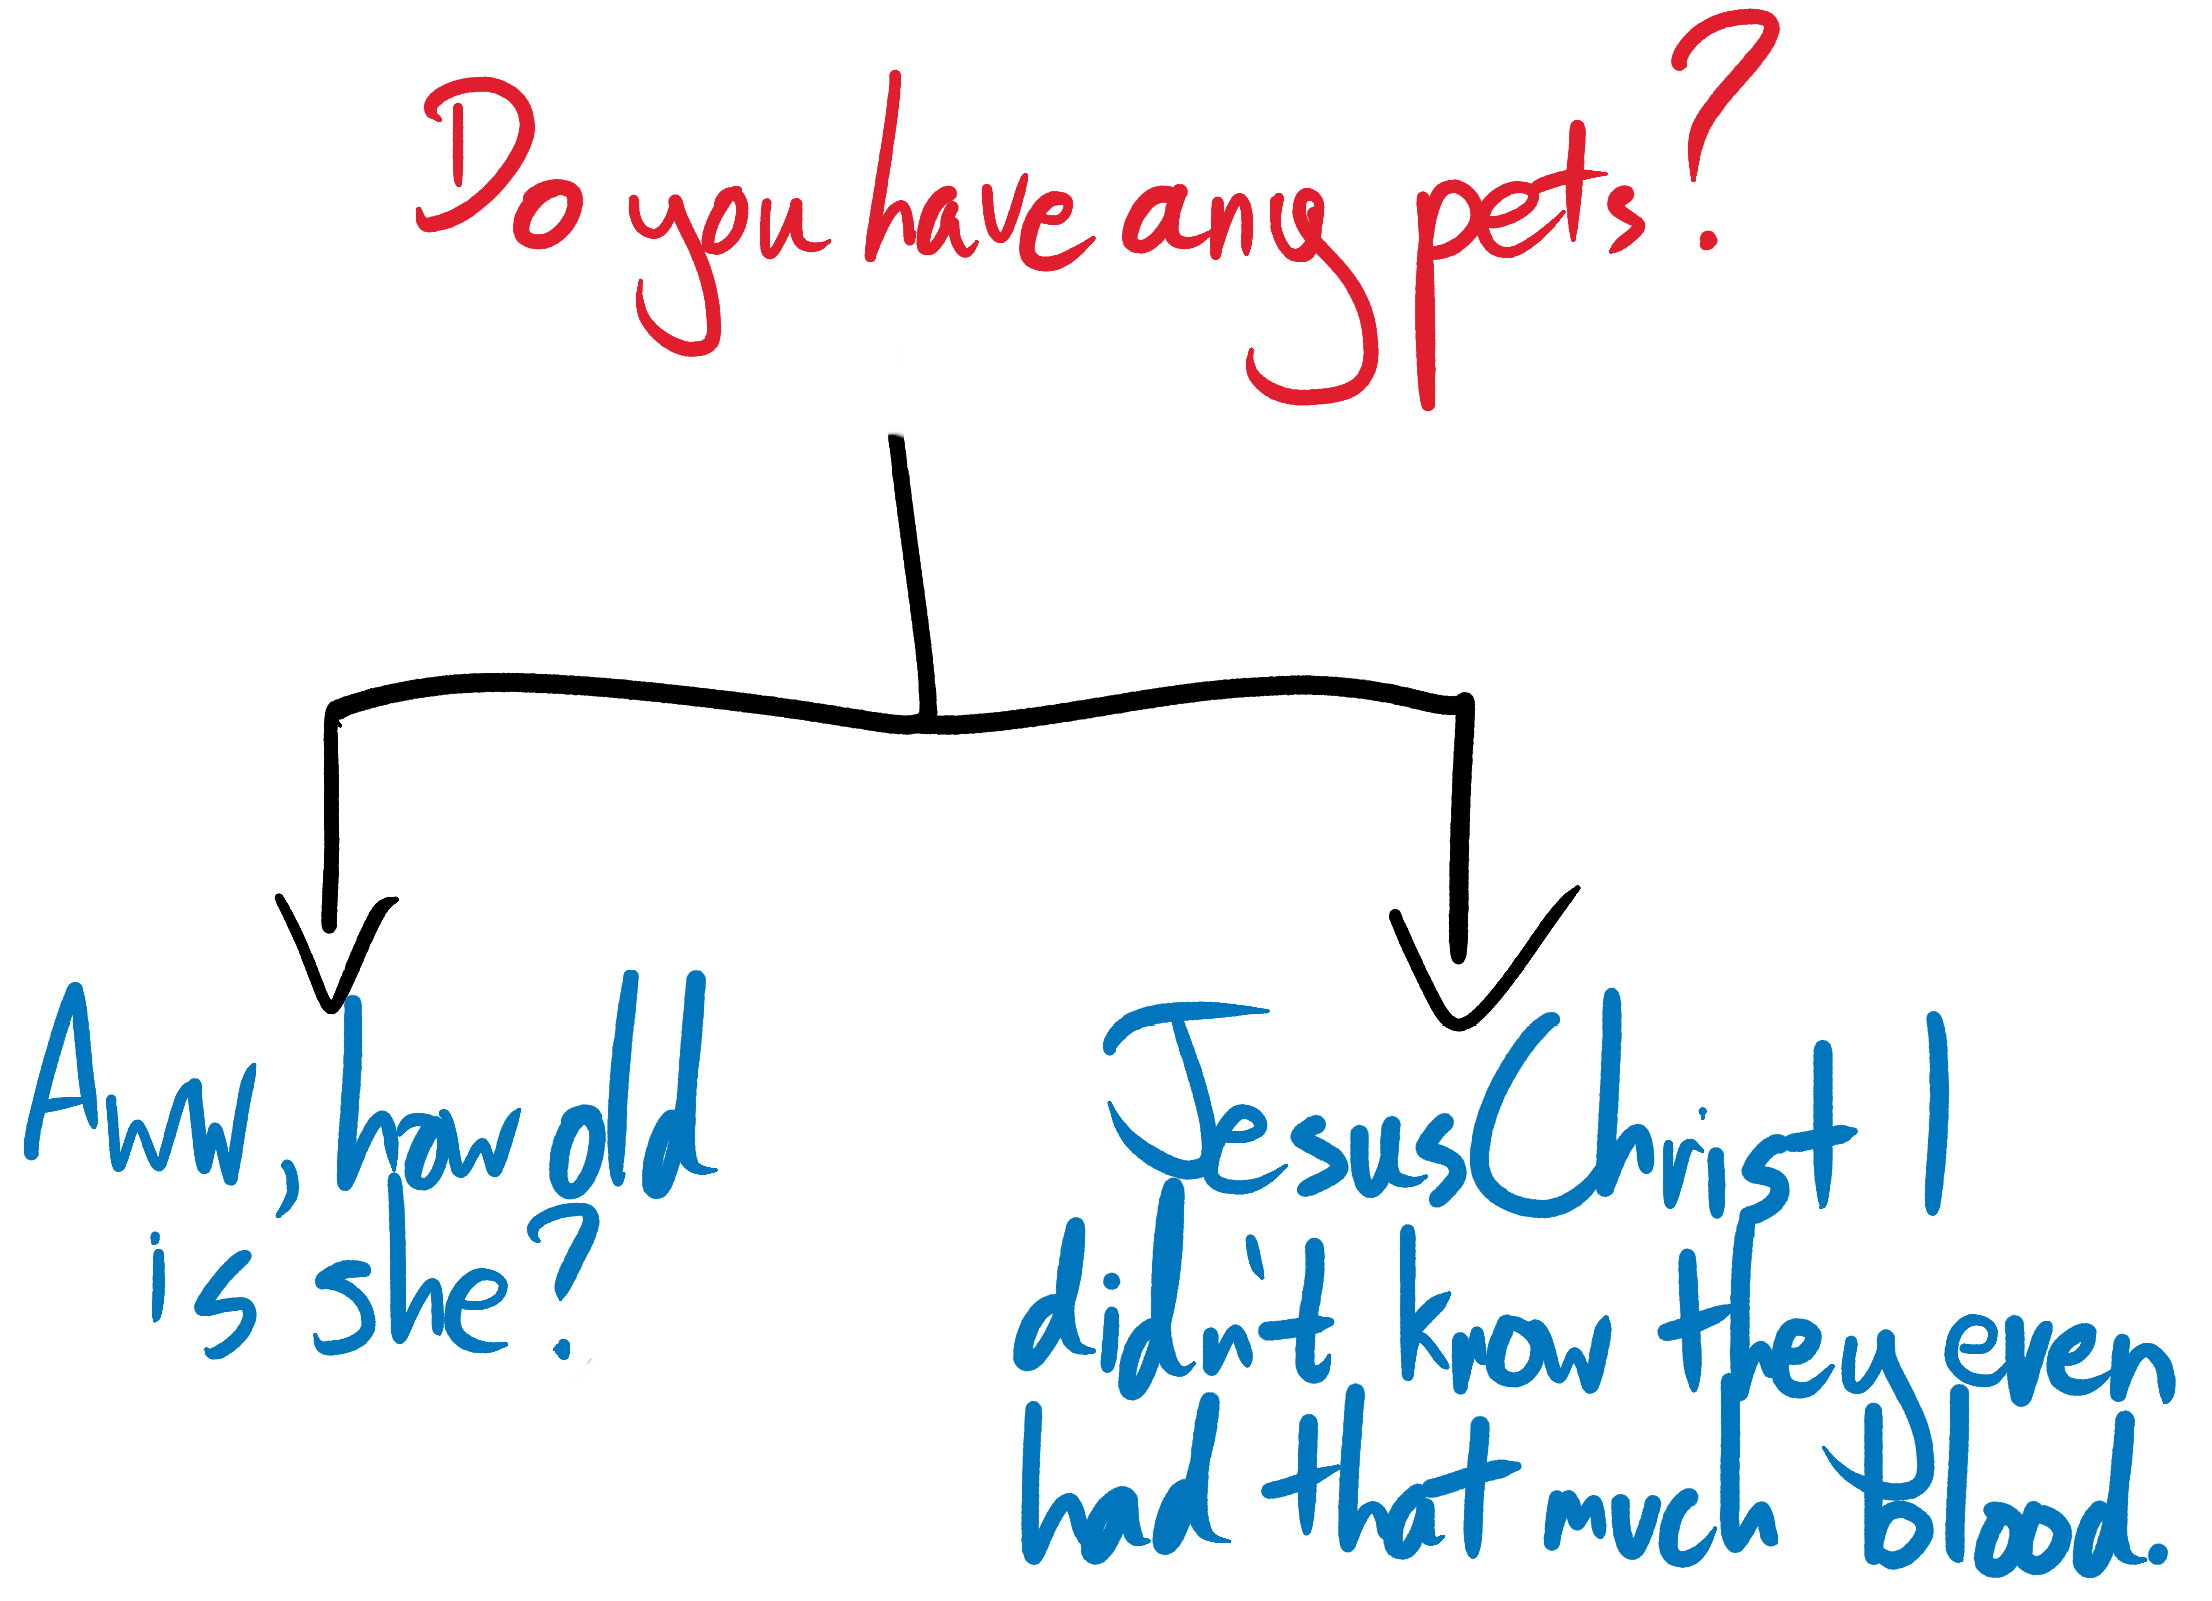 Do you have any pets?
Aww, how old
is she?
Jesus Christ I
didn't know they even
had that much blood.